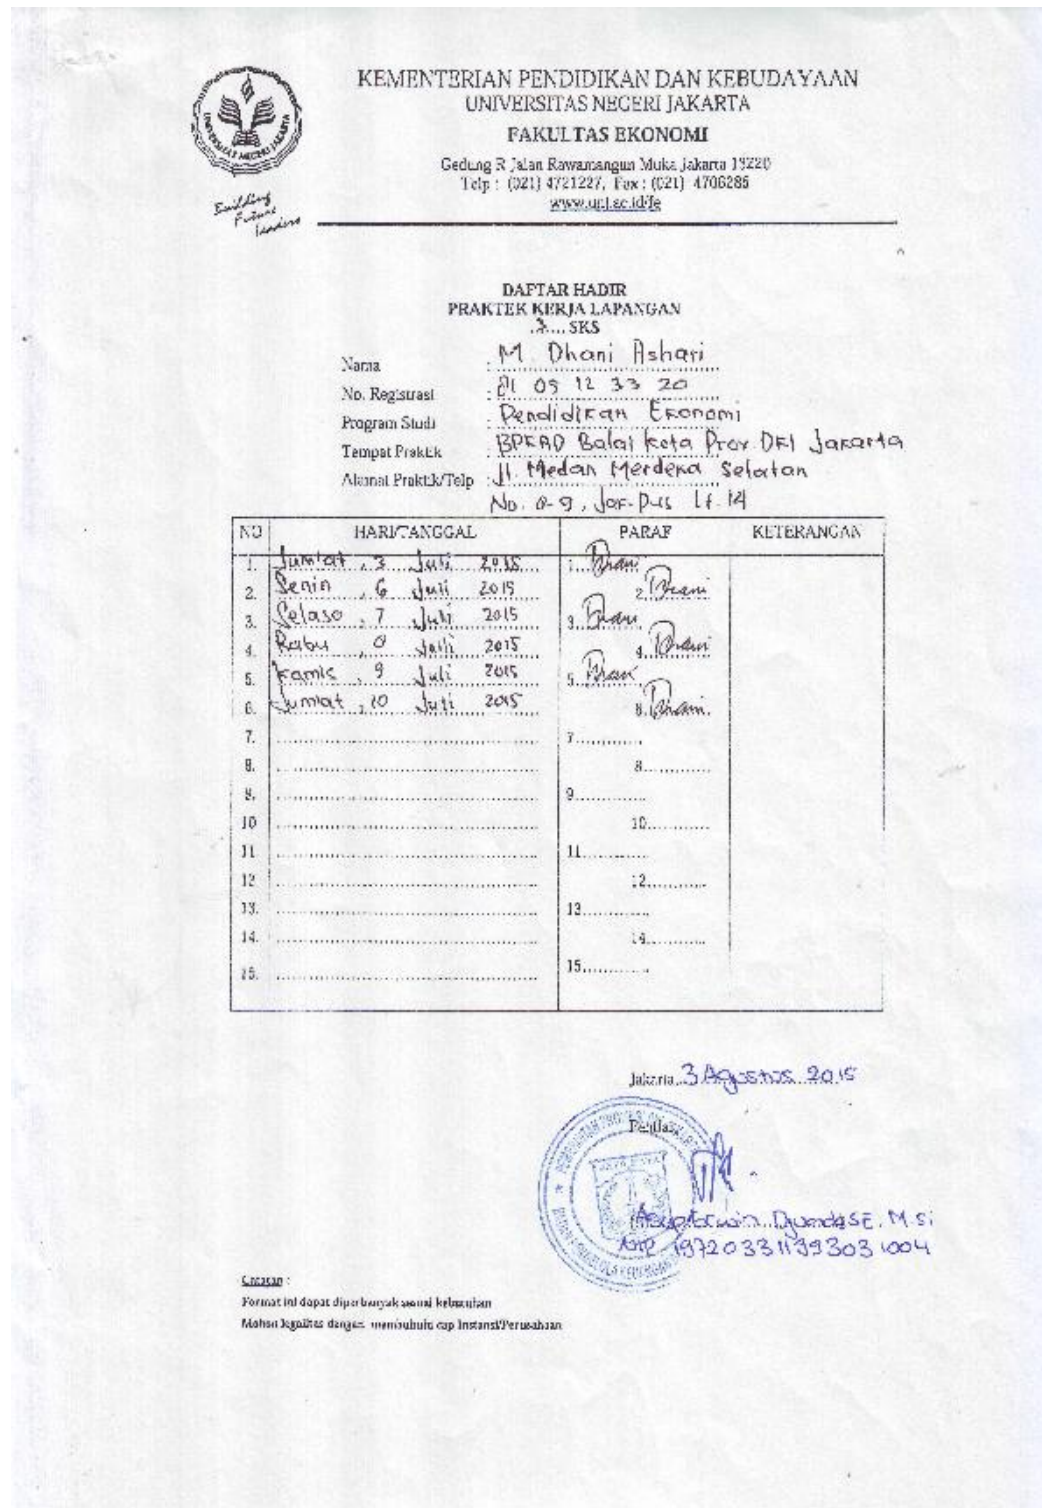 KEMENTERIAN PENDIDIKAN DAN KEBUDAYAAN
UNIVERSITAS NEGERI JAKARTA
FAKULTAS EKONOMI
Gedung R Jalan Rawamangun Muka Jakarta 13220
Telp : (021) 4721227, Fax : (021) 4706285
www.unj.ac.id/fe
UNIVERSITAS NEGERI JAKARTA
Building
Future
Leaders
DAFTAR HADIR
PRAKTEK KERJA LAPANGAN
.2.... SKS
Nama : M. Dhani Ashari
No. Registrasi : 81 05 12 33 20
Program Studi : Pendidikan Ekonomi
Tempat Praktik : BPKAD Balai Kota Prov. DKI Jakarta
Alamat Praktik/Telp : Jl. Medan Merdeka Selatan
No. 8-9, Jak-Pus Lt. 14
NO HARI/TANGGAL PARAF KETERANGAN
1. Jum'at, 3 Juli 2015 1. Dhani
2. Senin, 6 Juli 2015 2. Dhani
3. Selasa, 7 Juli 2015 3. Dhani
4. Rabu, 8 Juli 2015 4. Dhani
5. Kamis, 9 Juli 2015 5. Dhani
6. Jum'at, 10 Juli 2015 6. Dhani
7. 7.
8. 8.
9. 9.
10 10.
11 11.
12 12.
13. 13.
14. 14.
15. 15.
Jakarta, 3 Agustus 2015
Penilai,
SE. M.Si
NIP 197203311993031004
Catatan :
Format ini dapat diperbanyak sesuai kebutuhan
Mohon legalitas dengan membubuhi cap Instansi/Perusahaan